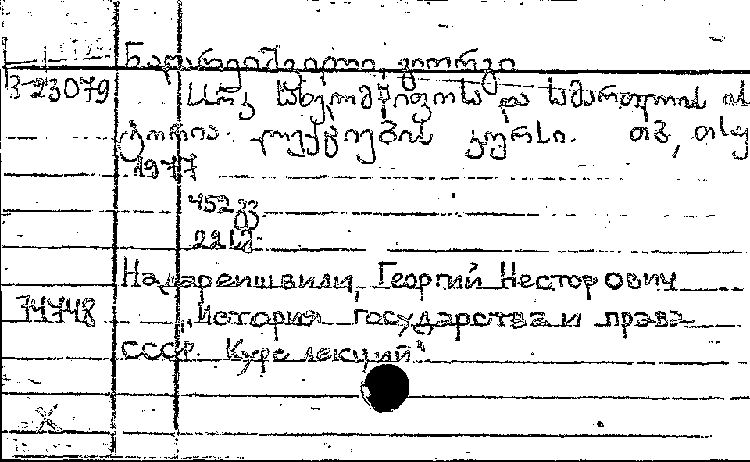 ნადარეიშვილი, გიორგი
З-23079 სსრკ სახელმწიფოსა და სამართლის ის
ტორია. ლექციების კურსი. თბ, თსუ
1977
452 გვ
Надареишвили, Георгий Несторович
74748 „История государства и права
СССР. Курс лекций“